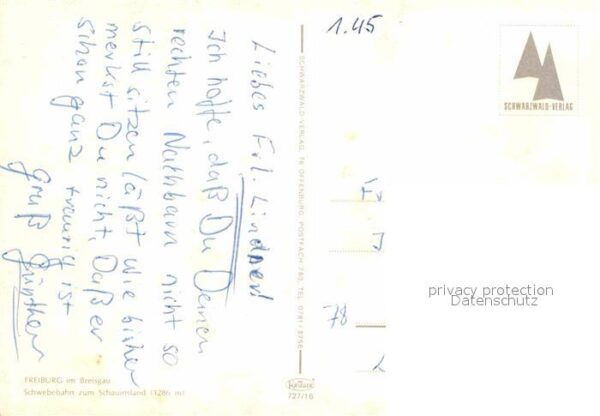 Liebes Frl. Lindner!
Ich hoffe, daß Du Deinen
rechten Nachbarn nicht so
still sitzen läßt wie bisher
merkst Du nicht, Daß er
schon ganz traurig ist
Gruß Günther
1.45
SCHWARZWALD-VERLAG
SCHWARZWALD-VERLAG, 76 OFFENBURG, POSTFACH 780, TEL. 0781/3758
Fr
J
78
privacy protection
Datenschutz
FREIBURG im Breisgau
Schwebebahn zum Schauinsland (1286 m)
727/18